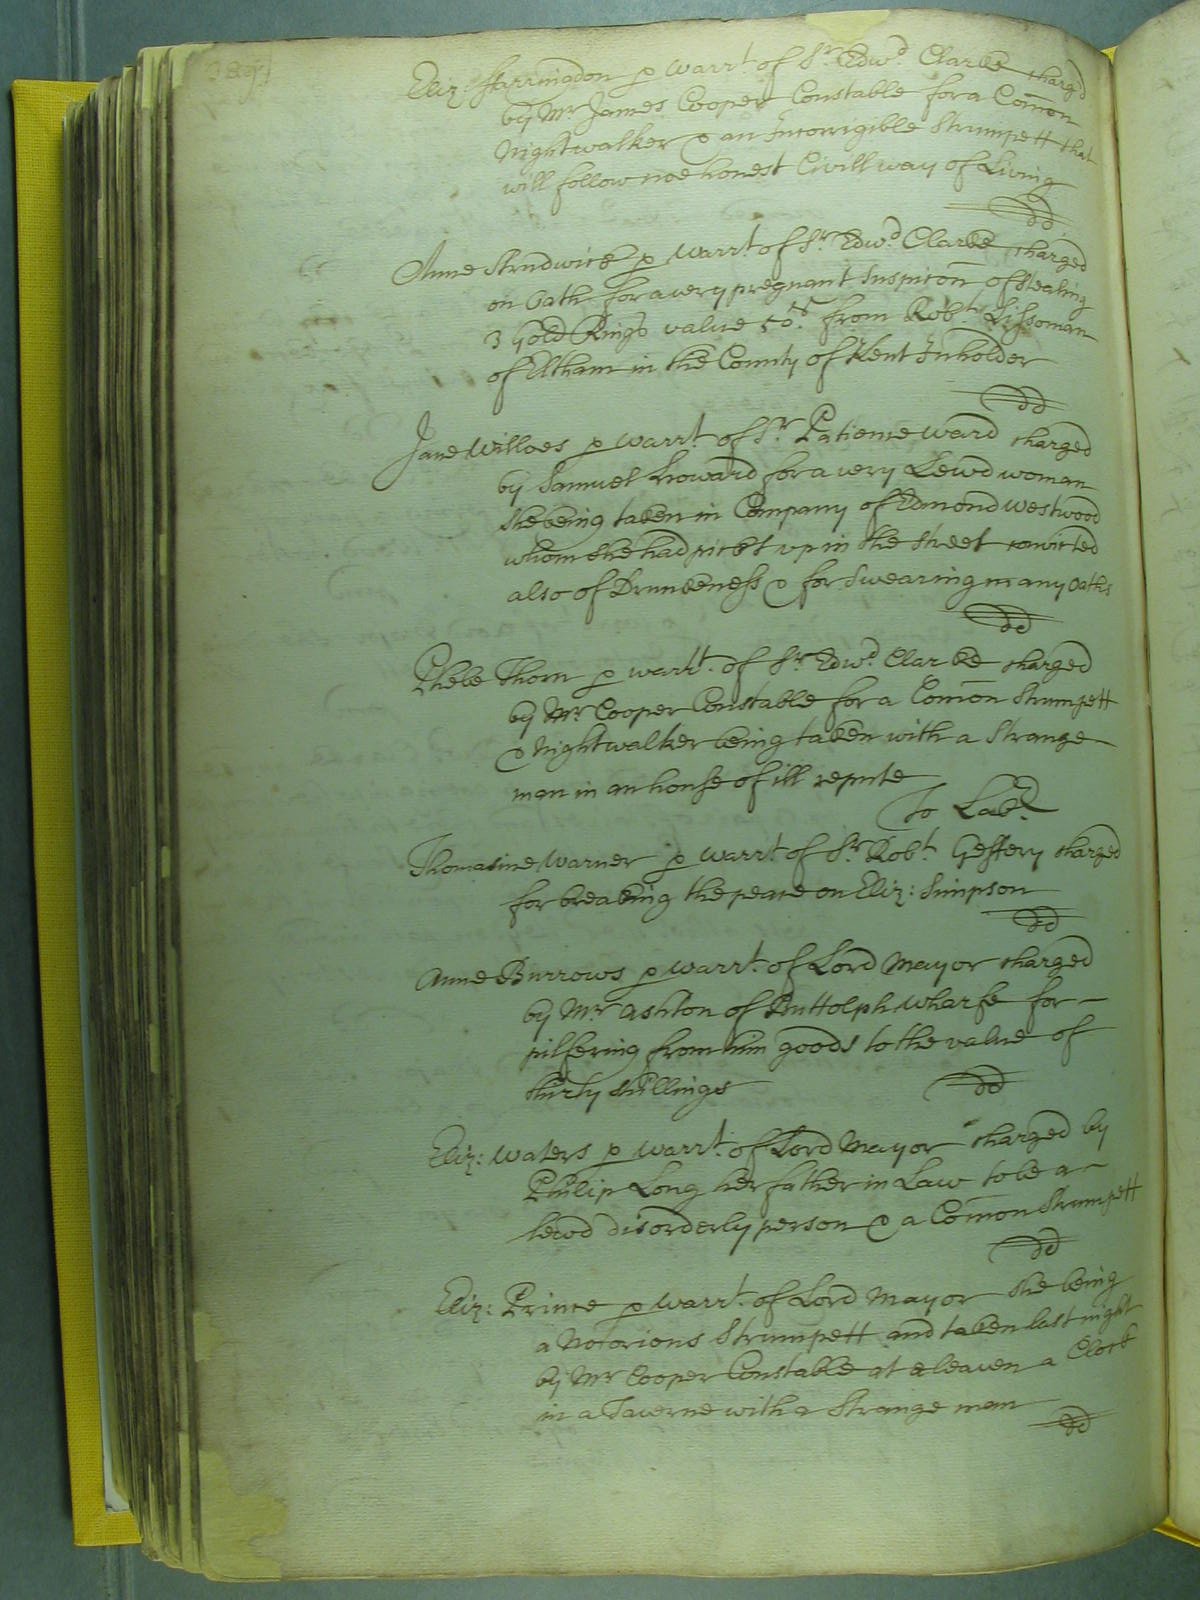 Eliz: Harringdon p warrt. of Sr. Edwd. Clarke charg'd
by Mr James Cooper Constable for a Comon
Nightwalker & an Incorrigible Strumpett that
will follow noe honest Civill way of Living
dd
Anne Strudwick p warrt. of Sr. Edwd. Clarke charged
on Oath for a very pregnant Suspicon of Stealing
3 Gold Rings value 50s. from Robt. Lissoman
of Eltham in the County of Kent Inholder
dd
Jane Willoes p warrt. of Sr. Patience Ward charged
by Samuel Howard for a very Lewd woman
she being taken in Company of Edmond Westwood
whom she had pickt up in the Street convicted
also of Drunkeness & for Swearing many Oaths
dd
Phebe Thorn p warrt. of Sr. Edwd. Clarke charged
by Mr Cooper Constable for a Comon Strumpett
& Nightwalker being taken with a Strange
man in an house of ill repute
To Labr.
Thomasine Warner p warrt. of Sr. Robt. Geffery charged
for breaking the peace on Eliz: Simpson
dd
Anne Burrows p warrt. of Lord Mayor charged
by Mr. Ashton of Buttolph wharfe for
pilfering from him goods to the value of
thirty shillings dd
Eliz: Waters p warrt. of Lord Mayor charged by
Philip Long her father in Law to be a
lewd disorderly person & a Comon Strumpett
dd
Eliz: Prince p warrt. of Lord Mayor she being
a Notorious Strumpett and taken last night
by Mr Cooper Constable at eleaven a Clock
in a Taverne with a Strange man
dd